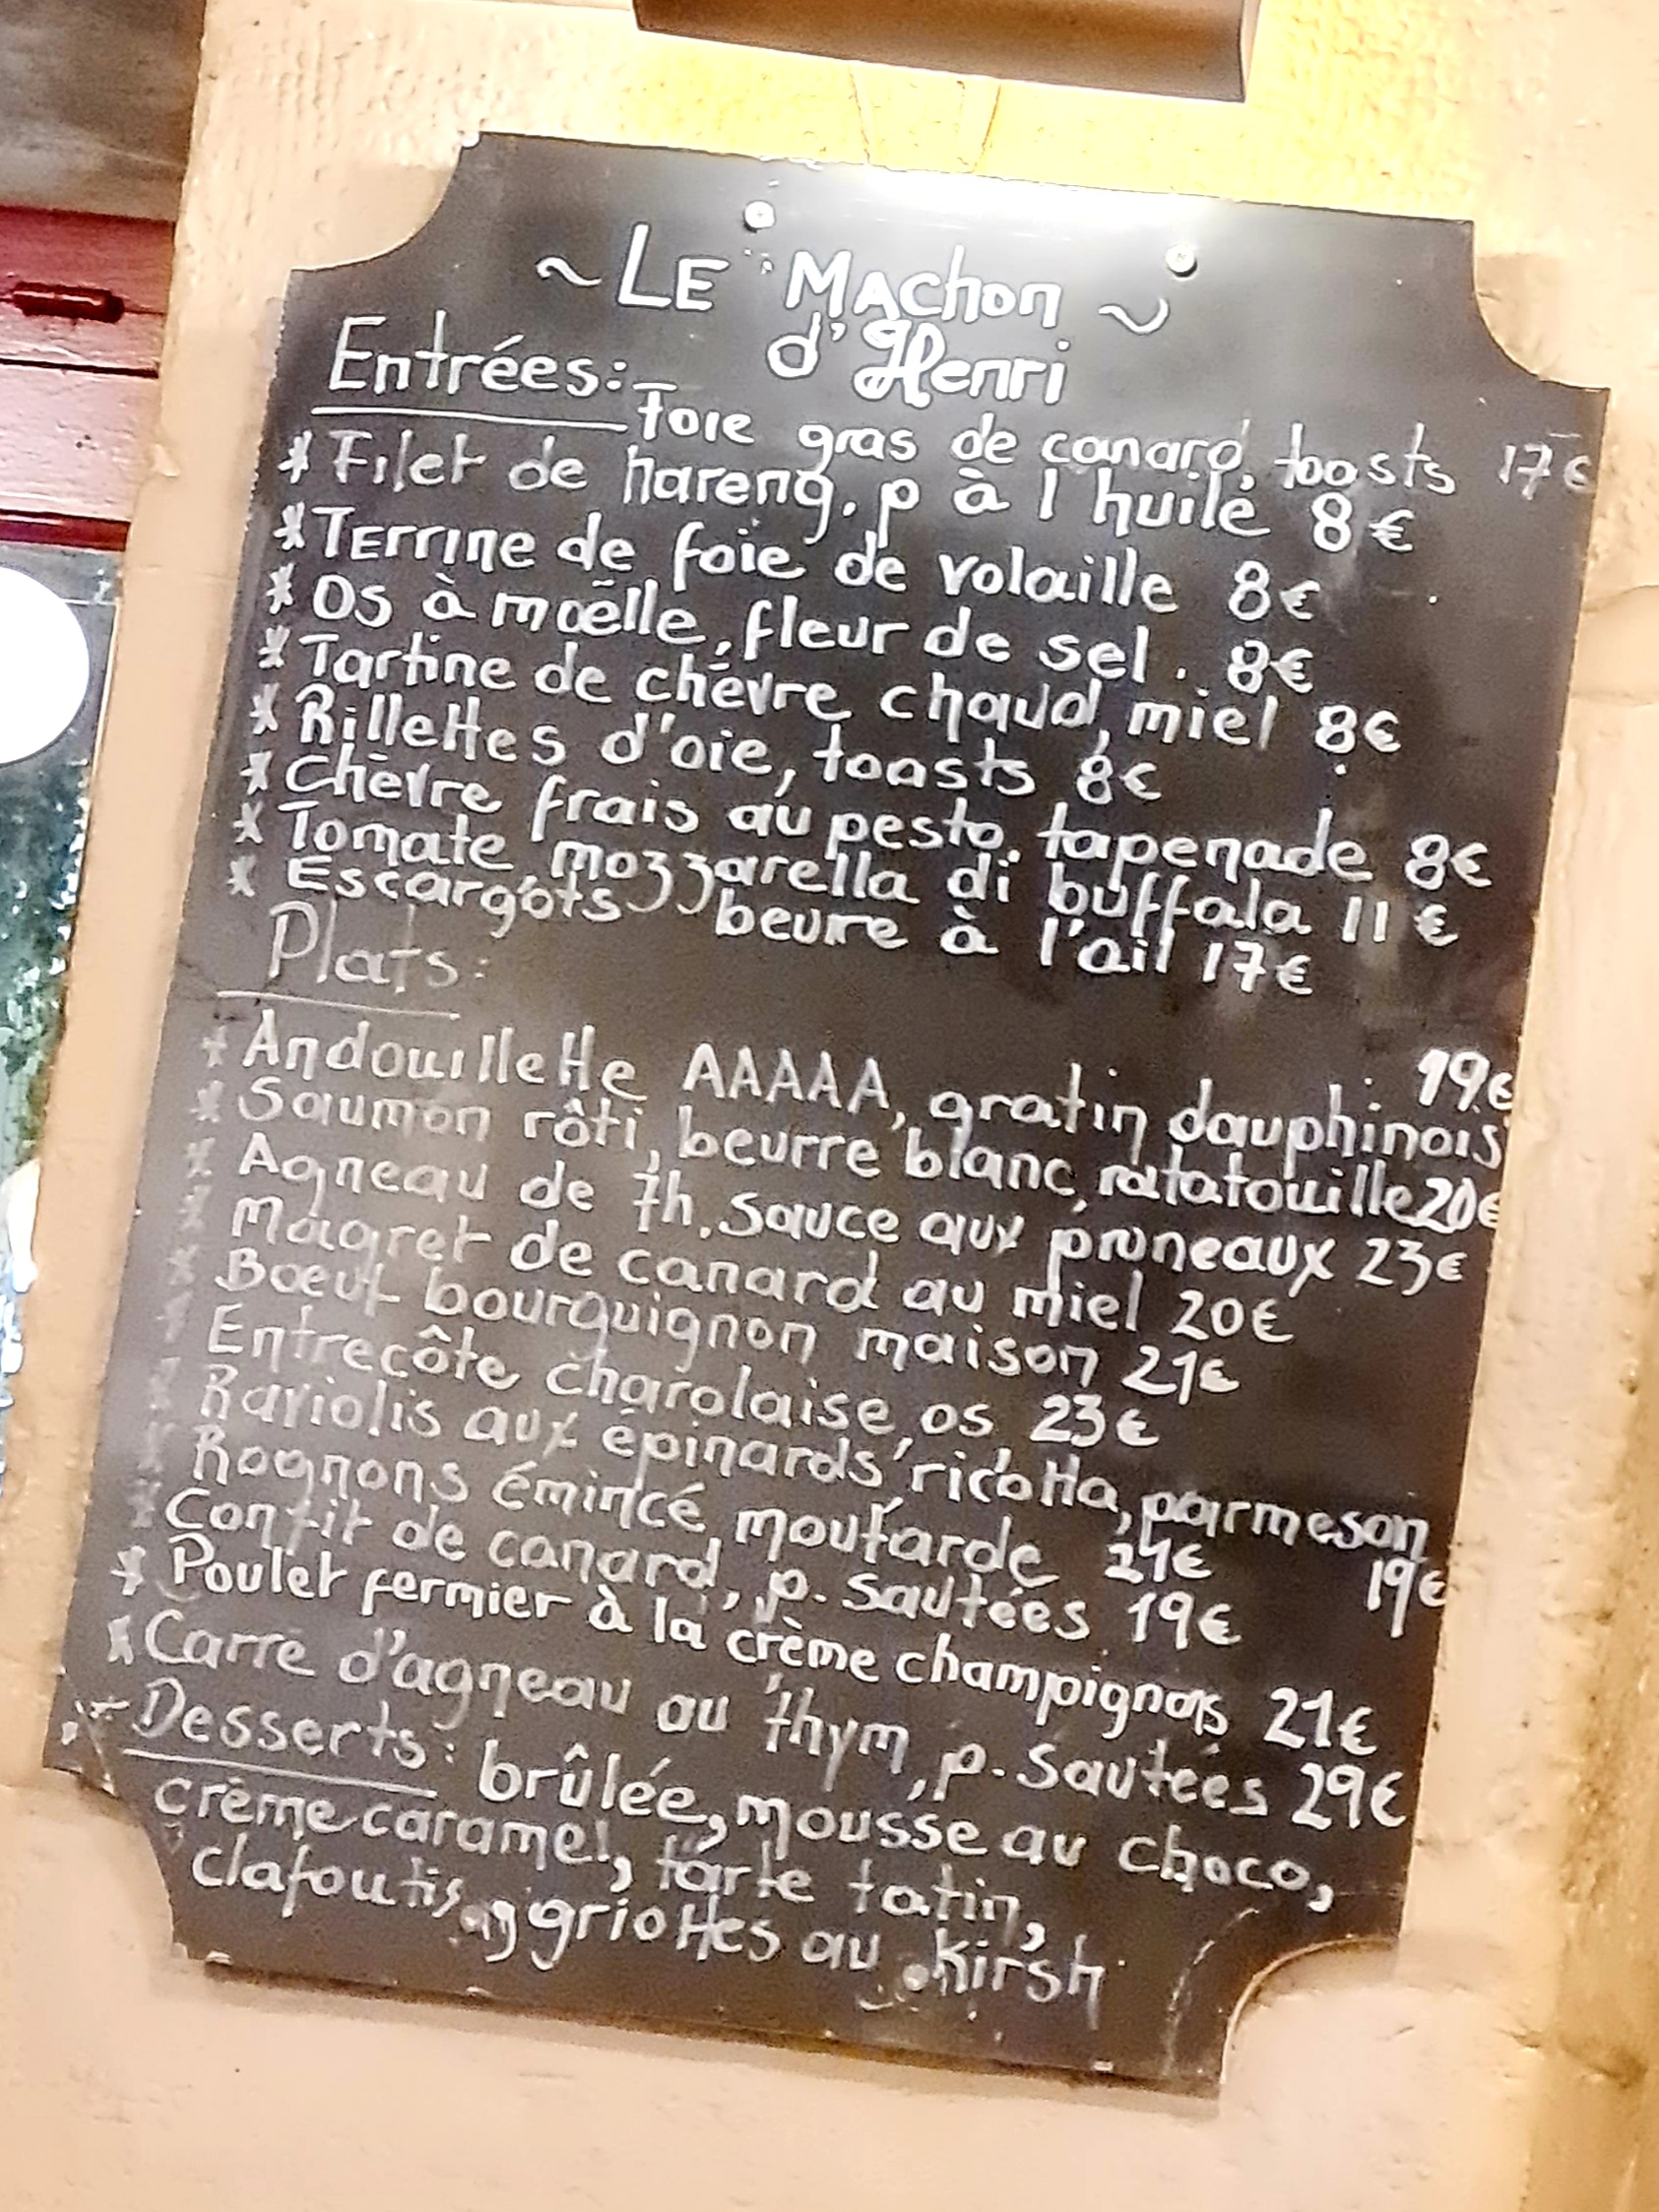 ~ LE MAChon ~
d'Henri
Entrées:
Foie gras de canard, toasts 17€
* Filet de hareng, p à l'huile 8€
* Terrine de foie de volaille 8€
* Os à mœlle, fleur de sel. 8€
* Tartine de chèvre chaud, miel 8€
* Rillettes d'oie, toasts 8€
* Chèvre frais au pesto, tapenade 8€
* Tomate, mozzarella di buffala 11€
* Escargots beurre à l'ail 17€
Plats:
* Andouillette AAAAA, gratin dauphinois 19€
* Saumon rôti, beurre blanc, ratatouille 20€
* Agneau de 7h, sauce aux pruneaux 23€
* Magret de canard au miel 20€
* Bœuf bourguignon maison 21€
* Entrecôte charolaise, os 23€
* Raviolis aux épinards, ricotta, parmeson 19€
* Rognons émincé moutarde 21€
* Confit de canard, p. sautées 19€
* Poulet fermier à la crème champignons 21€
* Carré d'agneau au thym, p. sautées 29€
Desserts: brûlée, mousse au choco,
crème caramel, tarte tatin,
clafoutis, griottes au kirsh